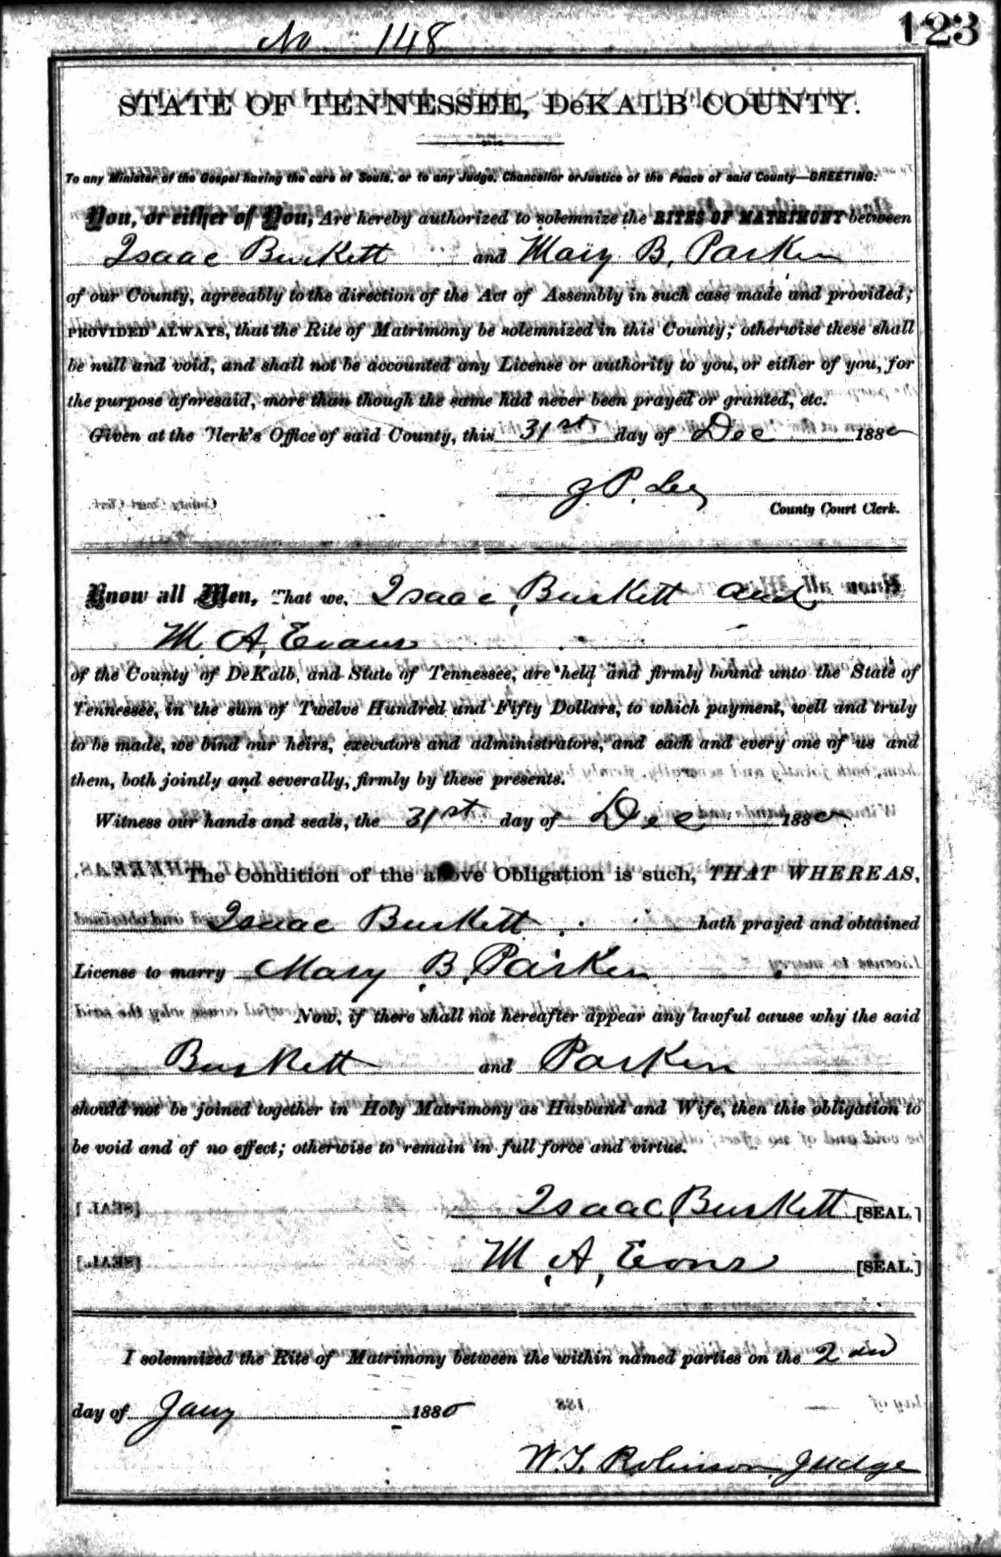 No 148
123
STATE OF TENNESSEE, DeKALB COUNTY.
To any Minister of the Gospel having the care of Souls, or to any Judge, Chancellor or Justice of the Peace of said County—GREETING:
You, or either of You, Are hereby authorized to solemnize the RITES OF MATRIMONY between
Isaac Burkett and Mary B. Parker
of our County, agreeably to the direction of the Act of Assembly in such case made and provided;
PROVIDED ALWAYS, that the Rite of Matrimony be solemnized in this County; otherwise these shall
be null and void, and shall not be accounted any License or authority to you, or either of you, for
the purpose aforesaid, more than though the same had never been prayed or granted, etc.
Given at the Clerk's Office of said County, this 31st day of Dec 188
P. Lee
County Court Clerk.
Know all Men, That we, Isaac Burkett and
M. A. Evans
of the County of DeKalb, and State of Tennessee, are held and firmly bound unto the State of
Tennessee, in the sum of Twelve Hundred and Fifty Dollars, to which payment, well and truly
to be made, we bind our heirs, executors and administrators, and each and every one of us and
them, both jointly and severally, firmly by these presents.
Witness our hands and seals, the 31st day of Dec 188
The Condition of the above Obligation is such, THAT WHEREAS,
Isaac Burkett hath prayed and obtained
License to marry Mary B. Parker
Now, if there shall not hereafter appear any lawful cause why the said
Burkett and Parker
should not be joined together in Holy Matrimony as Husband and Wife, then this obligation to
be void and of no effect; otherwise to remain in full force and virtue.
Isaac Burkett [SEAL.]
M. A. Evans [SEAL.]
I solemnized the Rite of Matrimony between the within named parties on the 2nd
day of Jany 1880
W. T. Robinson Judge